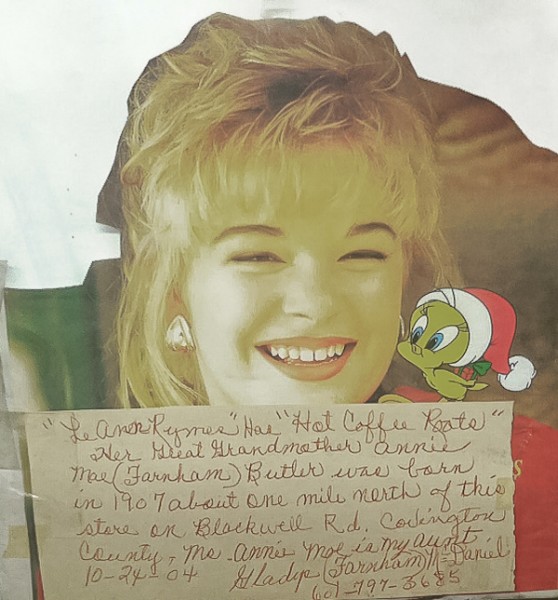 "LeAnn Rymes" Has "Hot Coffee Roots"
Her Great Grandmother Annie
Mae (Farnham) Butler was born
in 1907 about one mile north of this
store on Blackwell Rd. Covington
County, Ms. Annie Mae is my aunt
10-24-04 Gladys (Farnham) McDaniel
601-797-3685
S